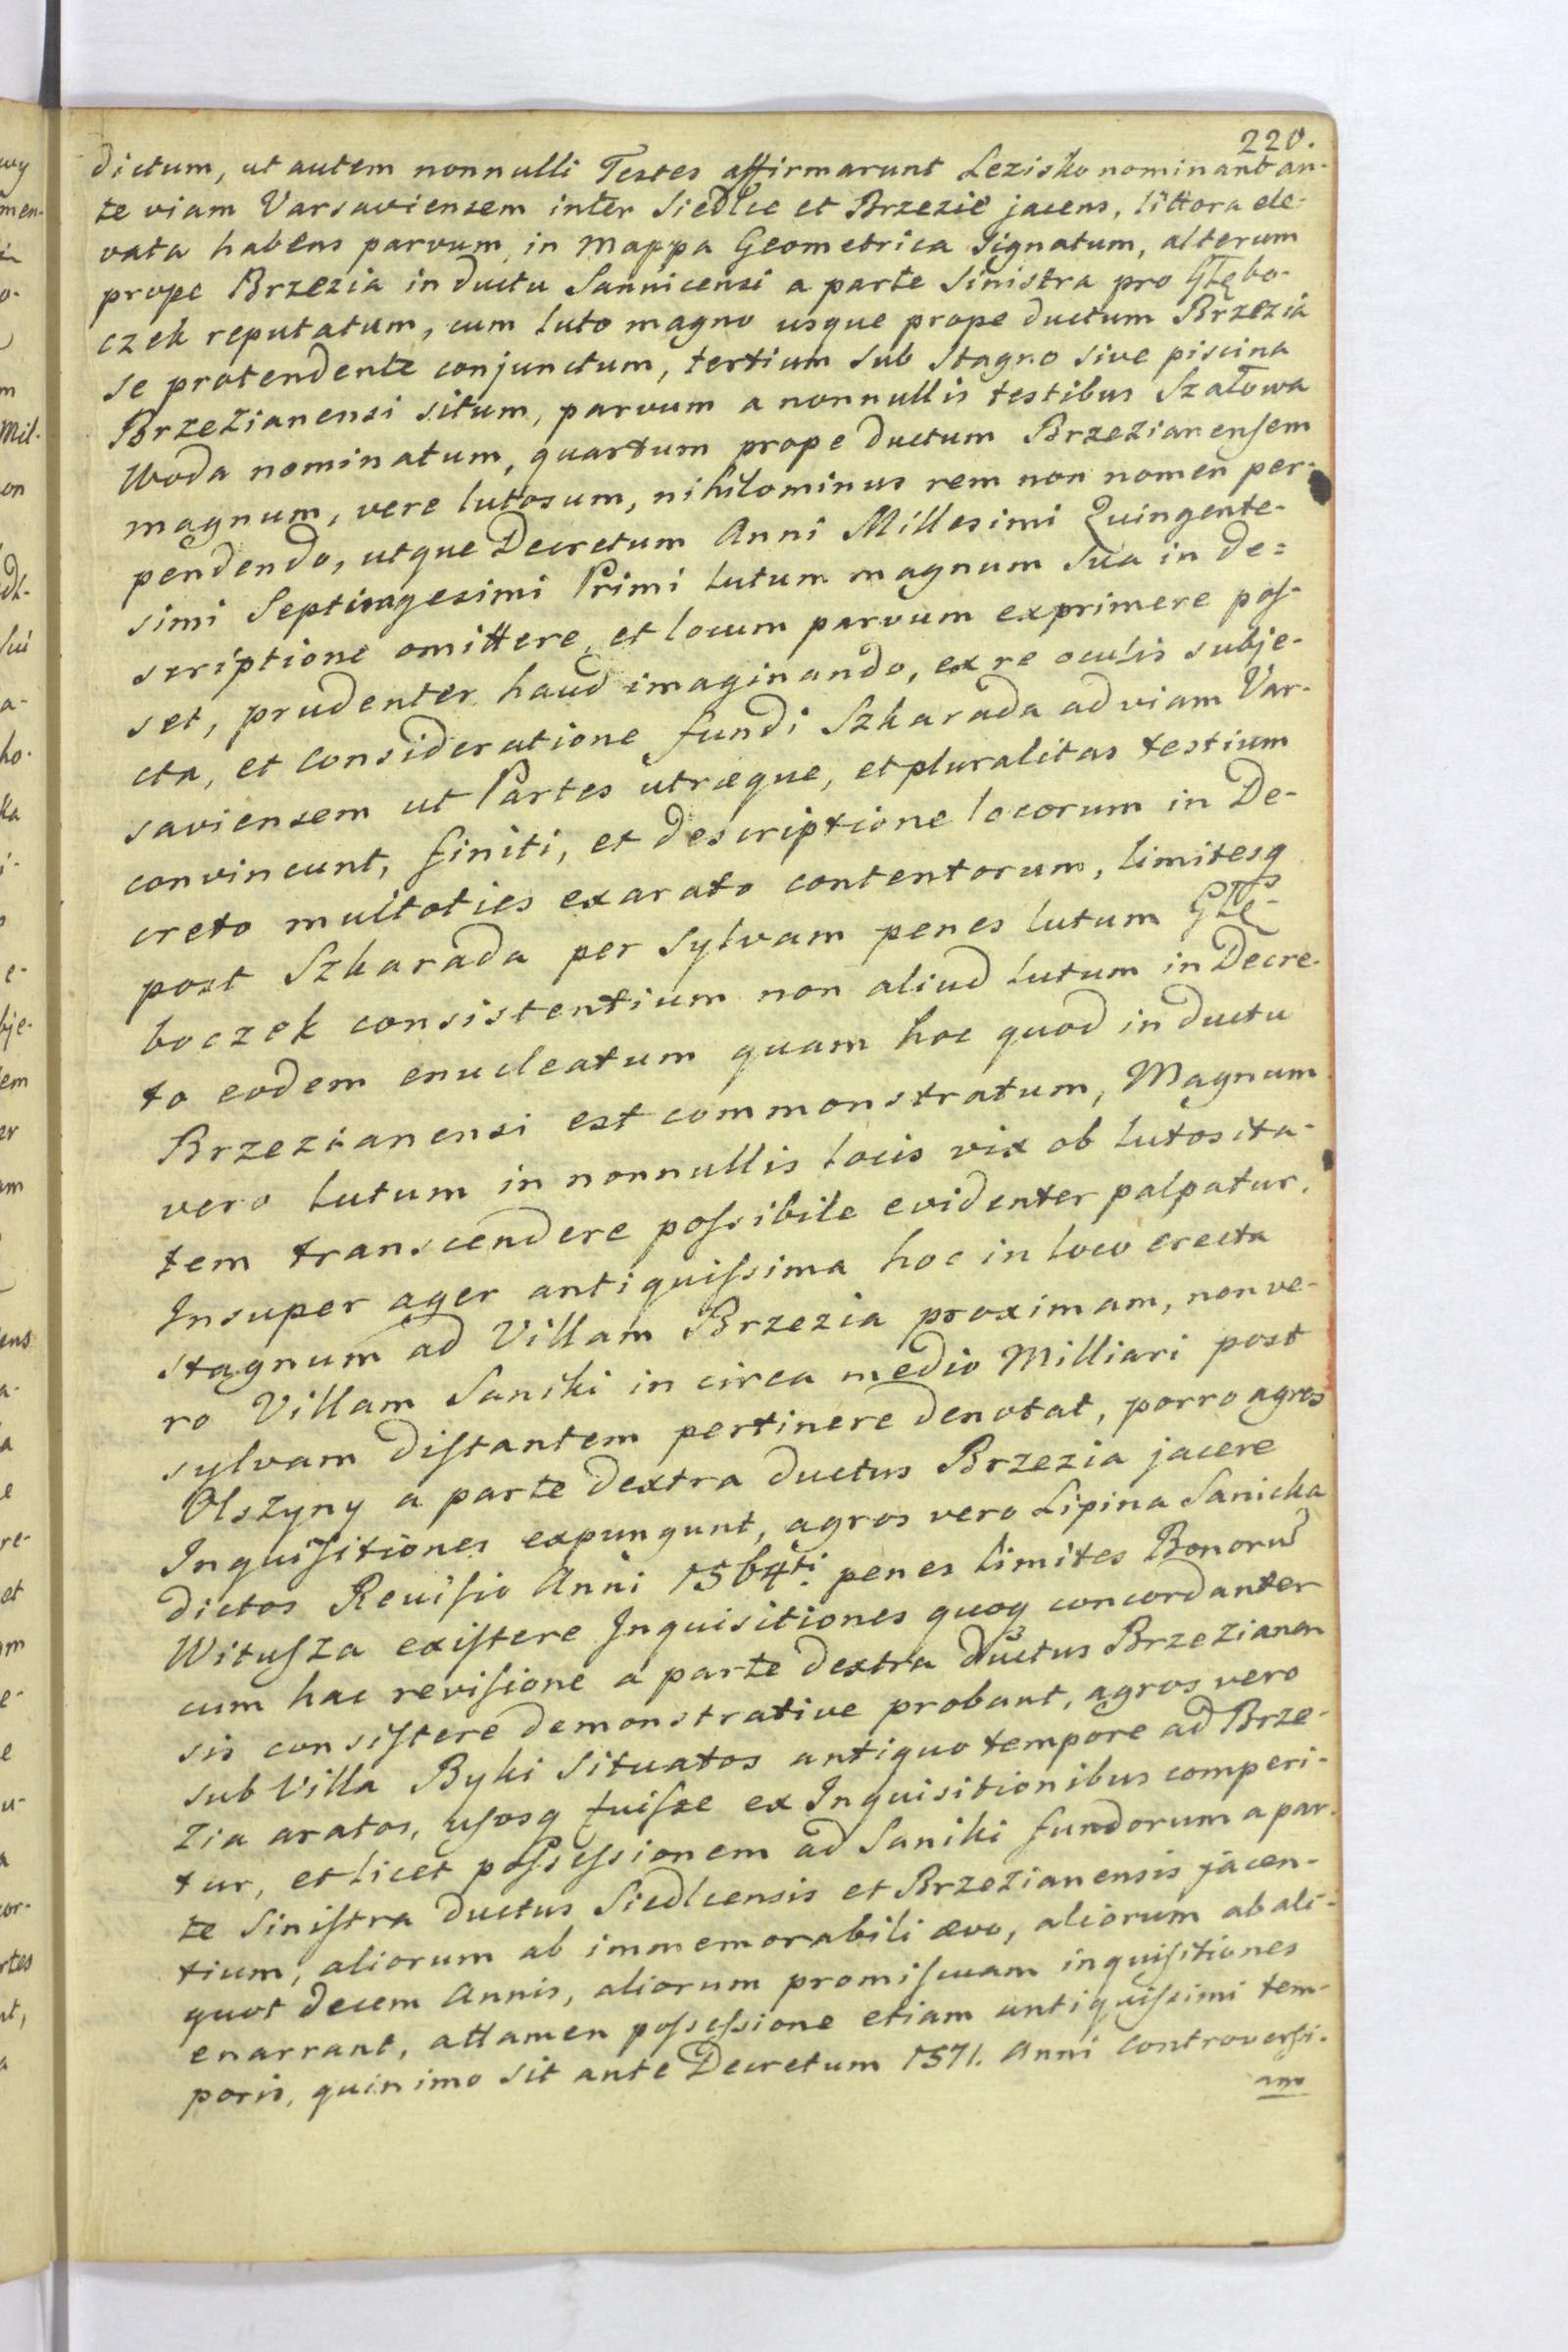 220.
dictum, ut autem nonnulli Testes affirmarunt Lezisko nominant an-
te viam Varsaviensem inter Siedlce et Brzezie jacens, littora ele-
vata habens parvum in Mappa Geometrica Signatum, alterum
prope Brzezia in ductu Sannicensi a parte Sinistra pro Głębo-
czek reputatum, cum luto magno usque prope ductum Brzezia
se protendente conjunctum, tertium Sub Stagno sive piscina
Brzezianensi situm, parvum a nonnullis testibus Szałowa
Woda nominatum, quartum prope ductum Brzezianensem
magnum, vere lutosum, nihilominus rem non nomen per-
pendendo, utque Decretum Anni Millesimi Quingente-
simi Septuagesimi Primi lutum magnum Sua in de=
scriptione omittere, et locum parvum exprimere pos-
set, prudenter haud imaginando, ex re oculis subje-
cta, et consideratione fundi Szkarada ad viam Var-
saviensem ut Partes utræque, et pluralitas testium
convincunt, finiti, et descriptione locorum in De-
creto multoties exarato contentorum, limitesq
post Szkarada per Sylvam penes lutum Głę-
boczek consistentium non aliud lutum in Decre-
to eodem enucleatum quam hoc quod in ductu
Brzezianensi est commonstratum, Magnum
vero lutum in nonnullis locis vix ob lutosita-
tem transcendere possibile evidenter palpatur.
Insuper ager antiquissima hoc in loco erecta
stagnum ad Villam Brzezia proximam, non ve-
ro Villam Saniki in circa medio Milliari post
sylvam distantem pertinere denotat, porro agros
Olszyny a parte dextra ductus Brzezia jacere
Inquisitiones expungunt, agros vero Lipina Sanicka
dictos Revisio Anni 1564ti penes limites Bonorũ
Witusza existere Inquisitiones quoq concordanter
cum hac revisione a parte dextra ductus Brzezianen
sis consistere demonstrative probant, agros vero
sub Villa Byki Situatos antiquo tempore ad Brze-
zia aratos, usosq fuisse ex Inquisitionibus comperi-
tur, et licet possessionem ad Saniki fundorum a par-
te Sinistra ductus Siedlcensis et Brzezianensis jacen-
tium, aliorum ab immemorabili ævo, aliorum ab ali-
quot decem Annis, aliorum promiscuam inquisitiones
enarrant, attamen possessione etiam antiquissimi tem-
poris, quinimo sit ante Decretum 1571. Anni Controversi-
am